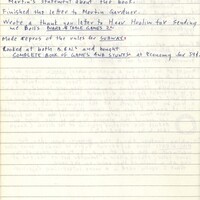 Martin's statement about the book.
Finished the letter to Martin Gardner.
Wrote a thank you letter to Herr Moslim for sending
me Bell's BOARD & TABLE GAMES II.
Made Xeroxs of the rules for SUBWAY.
Looked at both and bought
COMPLETE BOOK OF GAMES AND STUNTS at Economy for 59¢.